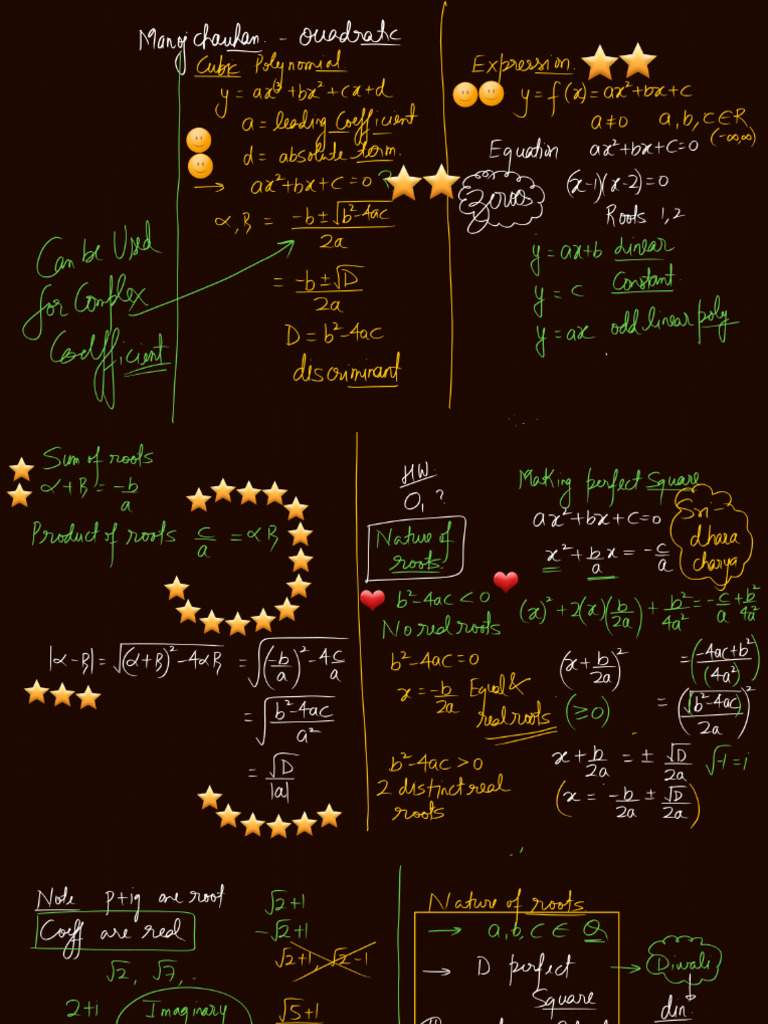 Manoj Chauhan. - Quadratic
Cubic Polynomial
y = ax³ + bx² + cx + d
a = leading Coefficient
d = absolute term.
→ ax² + bx + c = 0 ?
α, β = (-b ± √(b²-4ac))/2a
= (-b ± √D)/2a
D = b² - 4ac
discriminant
Can be Used
for Complex
Coefficient
Expression
y = f(x) = ax² + bx + c
a ≠ 0 a, b, c ∈ R
(-∞, ∞)
Equation ax² + bx + c = 0
Zeroes
(x-1)(x-2) = 0
Roots 1, 2
y = ax + b Linear
y = c Constant
y = ax odd linear poly
Sum of roots
α + β = -b/a
Product of roots c/a = αβ
|α-β| = √((α+β)² - 4αβ) = √((-b/a)² - 4c/a)
= √((b²-4ac)/a²)
= √D/|a|
HW
O, ?
Nature of
roots
b² - 4ac < 0
No real roots
b² - 4ac = 0
x = -b/2a Equal &
real roots
b² - 4ac > 0
2 distinct real
roots
Making perfect Square
ax² + bx + c = 0
Sri-
dhara
charya
x² + b/a x = -c/a
(x)² + 2(x)(b/2a) + b²/4a² = -c/a + b²/4a²
(x + b/2a)² = ((-4ac + b²)/(4a²))
(≥0)
= (√(b²-4ac)/2a)²
x + b/2a = ± √D/2a √-1 = i
(x = -b/2a ± √D/2a)
Note p+iq are root
Coeff are real
√2, √7, .
2+i Imaginary
√2+1
-√2+1
√2+1, √2-1
√5+1
Nature of roots
→ a, b, c ∈ Q
→ D perfect → Diwali
Square din